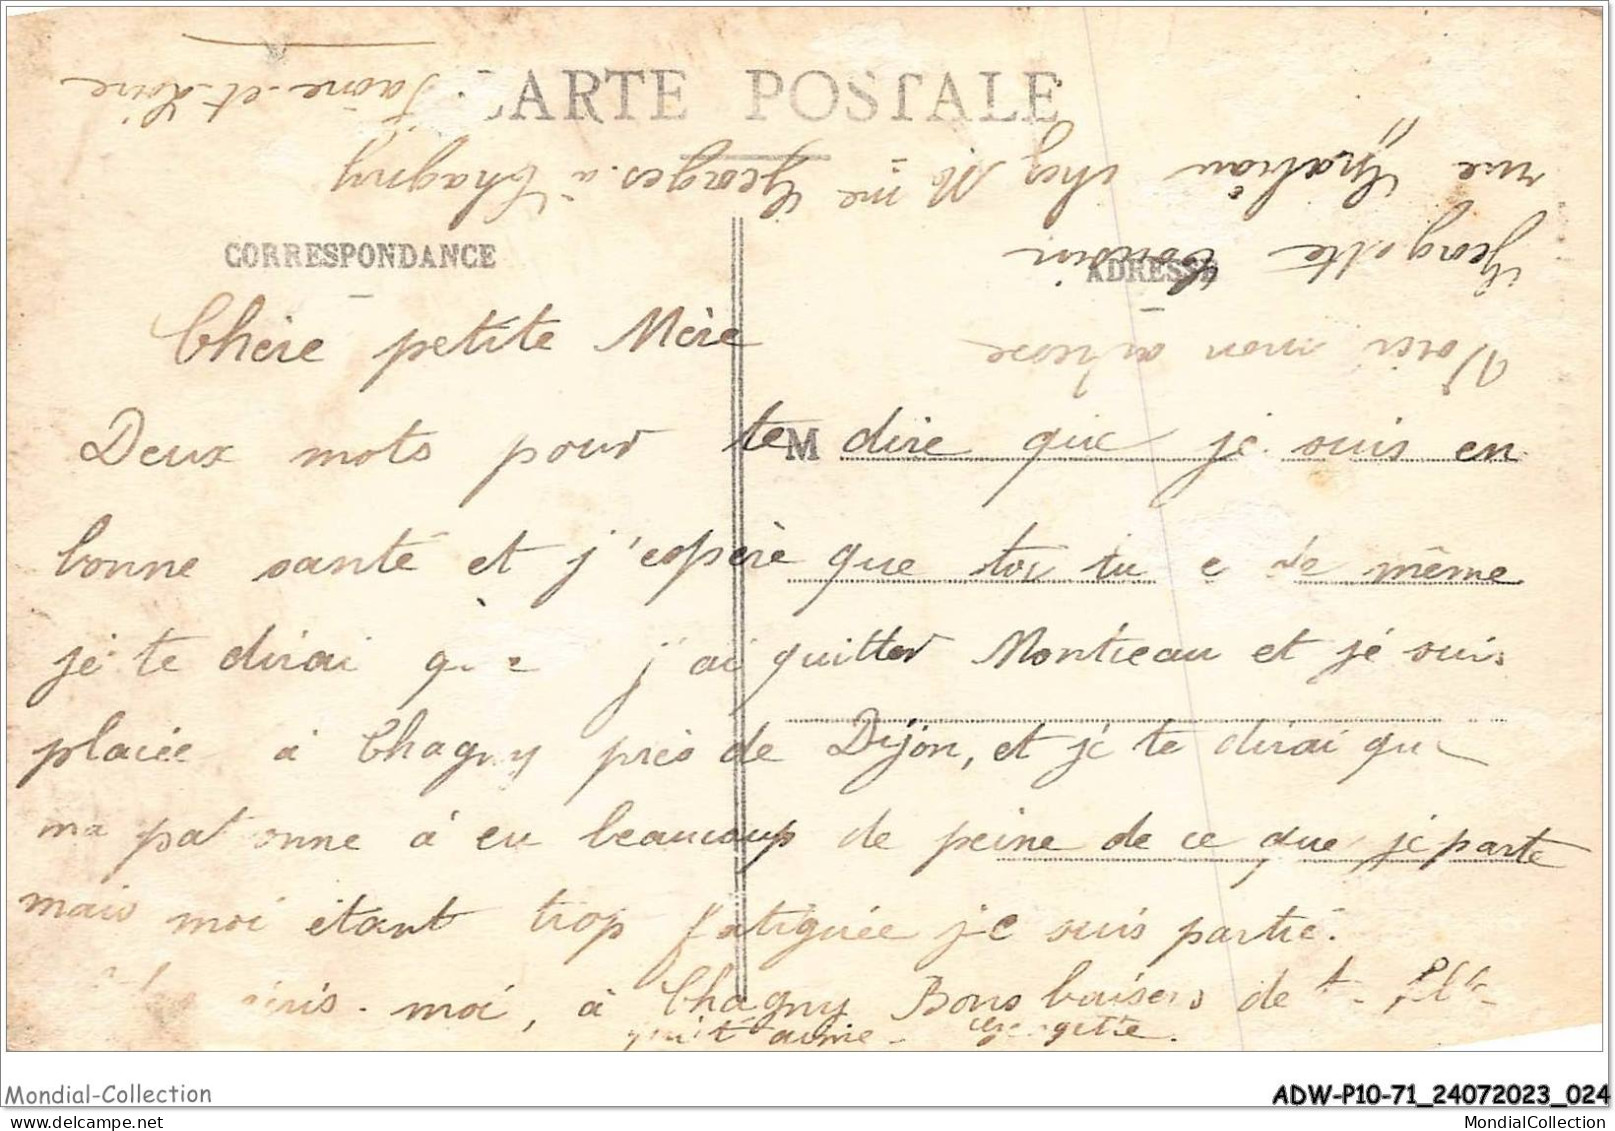 CARTE POSTALE
CORRESPONDANCE
ADRESSE
Chère petite Mère
Deux mots pour te M dire que je suis en
bonne santé et j'espère que toi tu e de même
je te dirai que j'ai quitter Montceau et je suis
placée à Chagny près de Dijon, et je te dirai que
ma patronne à eu beaucoup de peine de ce que je parte
mais moi étant trop fatiguée je suis partie.
moi, à Chagny Bons baisers de ta fille
qui t'aime Georgette.
Voici mon adresse
Georgette
rue chez Mme Georges à Chagny
Saône-et-Loire
Mondial-Collection
ADW-P10-71_24072023_024
www.delcampe.net
MondialCollection